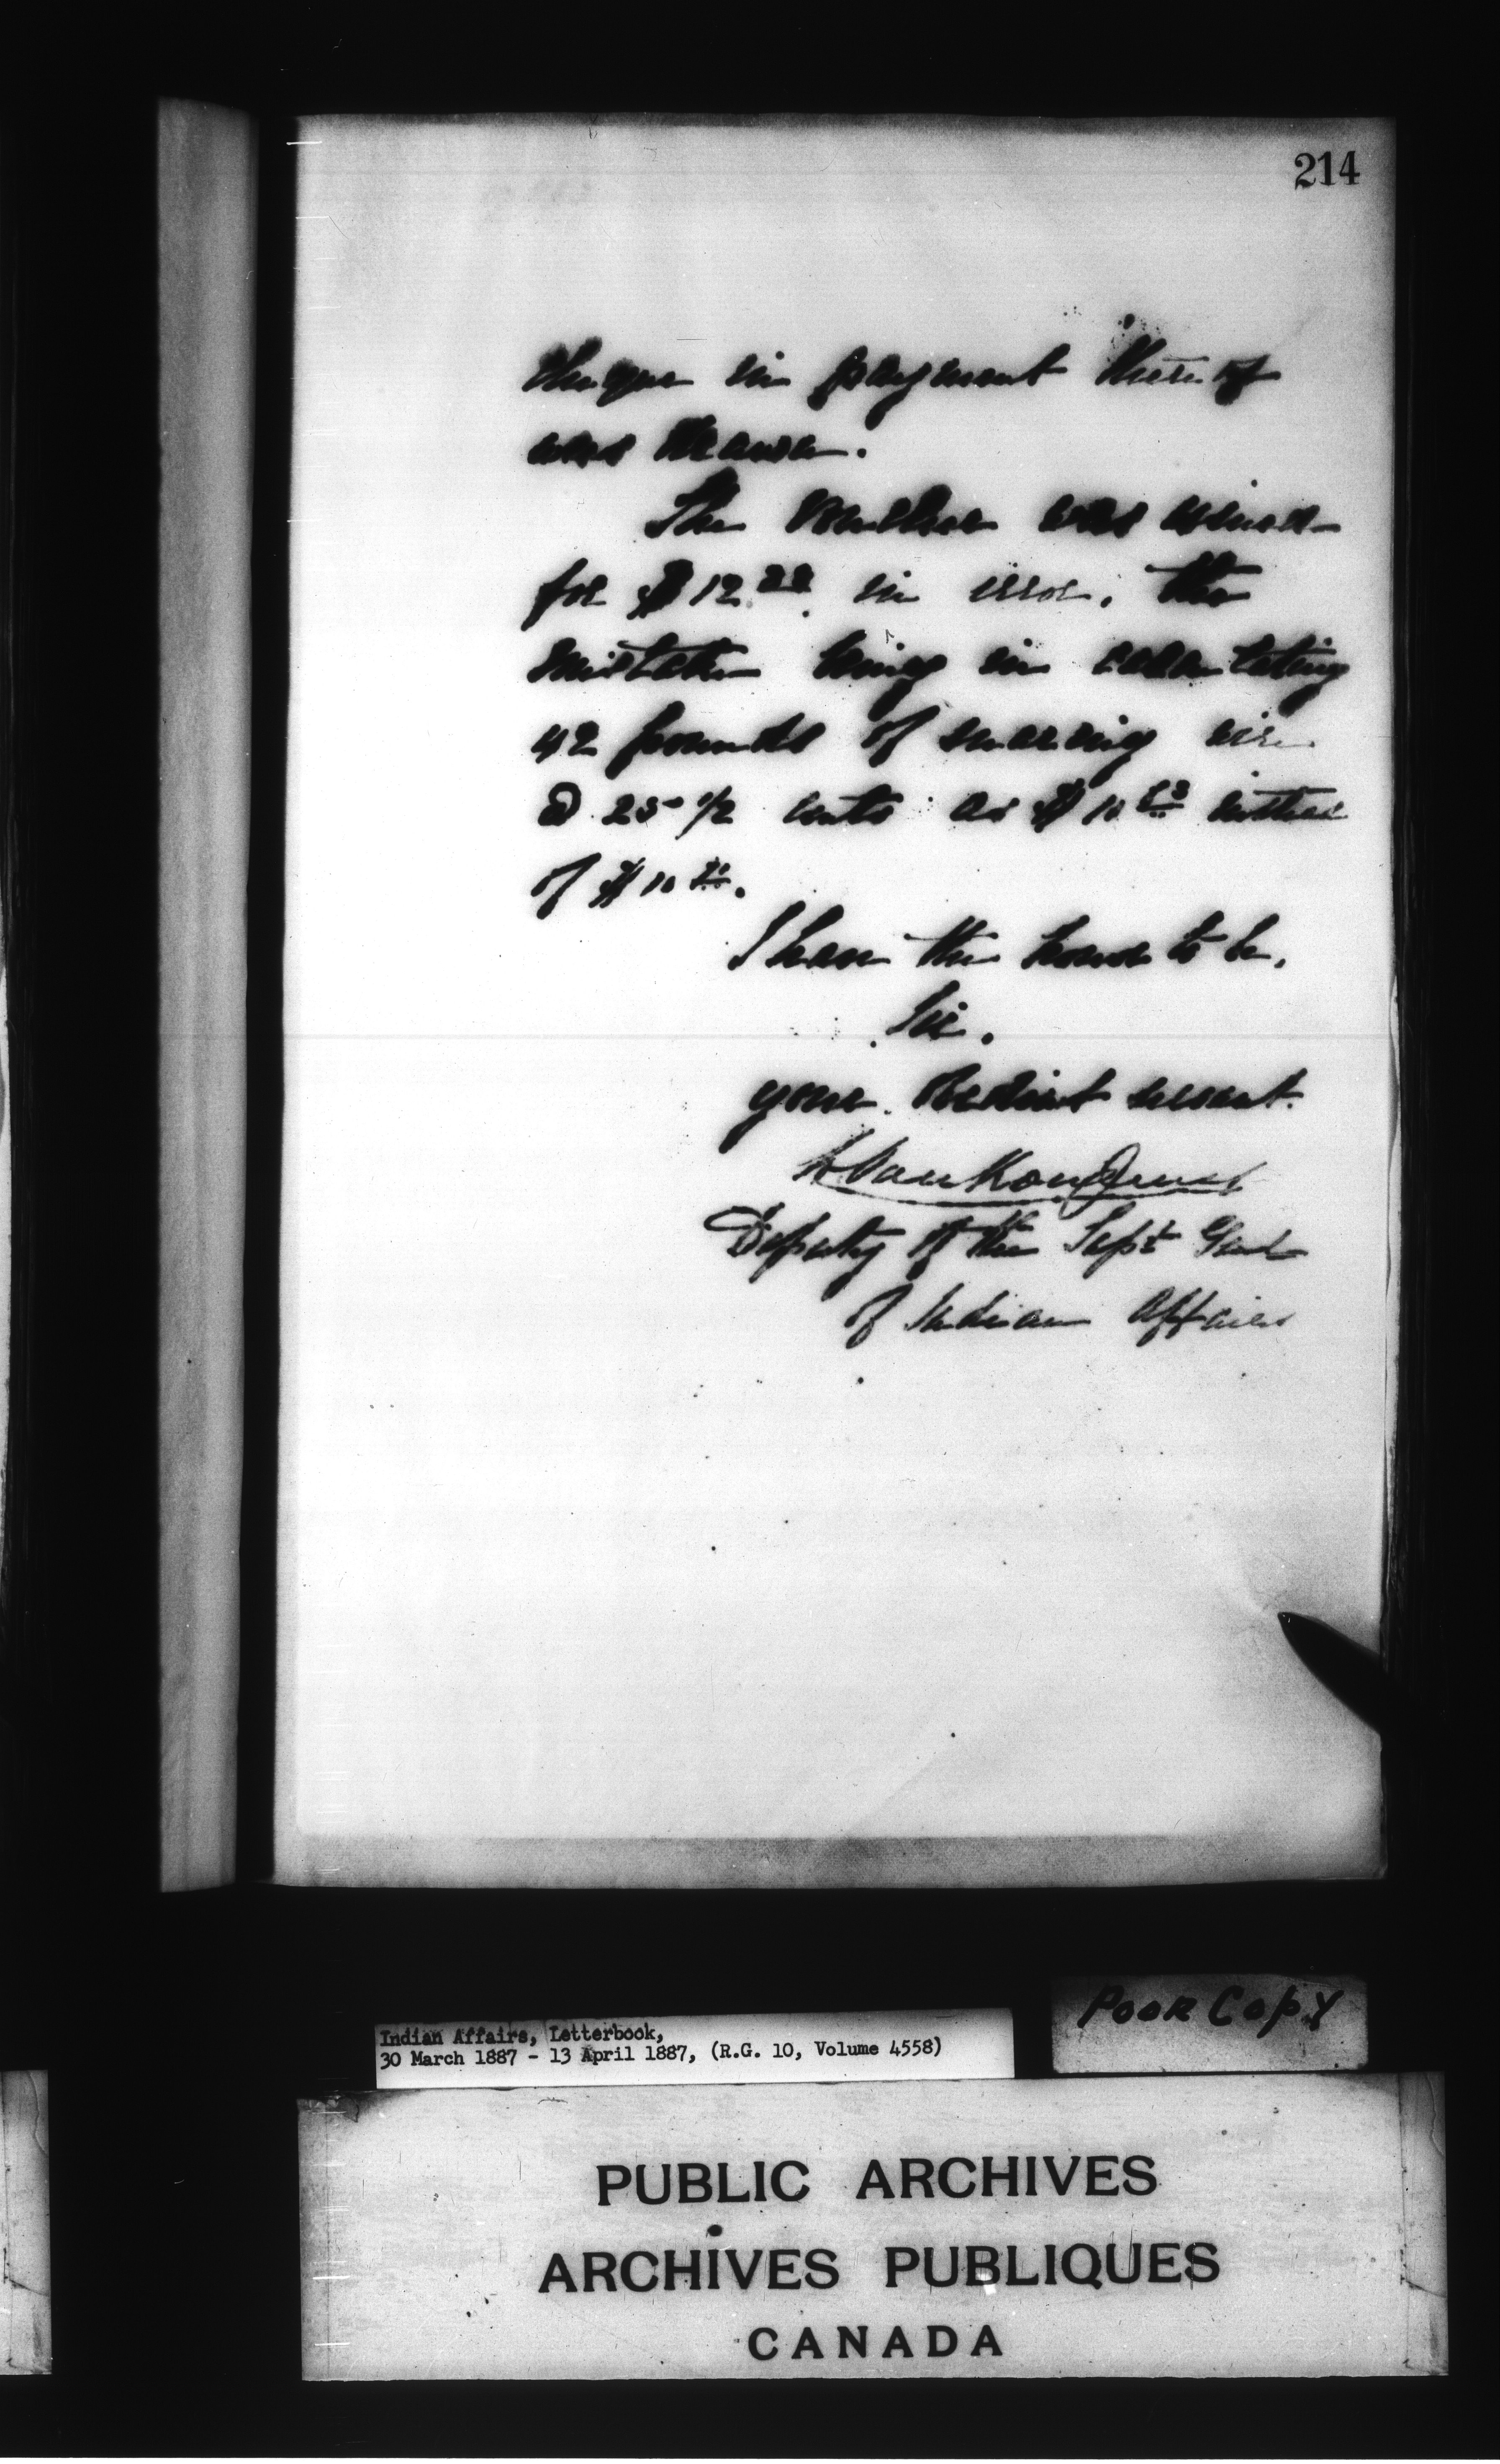 214
cheque in payment thereof
was drawn.
The voucher was issued
for $12 in error, the
mistake being in calculating
42 pounds of snaring wire
@ 25 1/2 cents as $10 instead
of $10
I have the honor to be,
Sir,
your obedient servant.
L VanKoughnet
Deputy of the Supt Genl
of Indian Affairs
Indian Affairs, Letterbook,
30 March 1887 - 13 April 1887, (R.G. 10, Volume 4558)
POOR COPY
PUBLIC ARCHIVES
ARCHIVES PUBLIQUES
CANADA